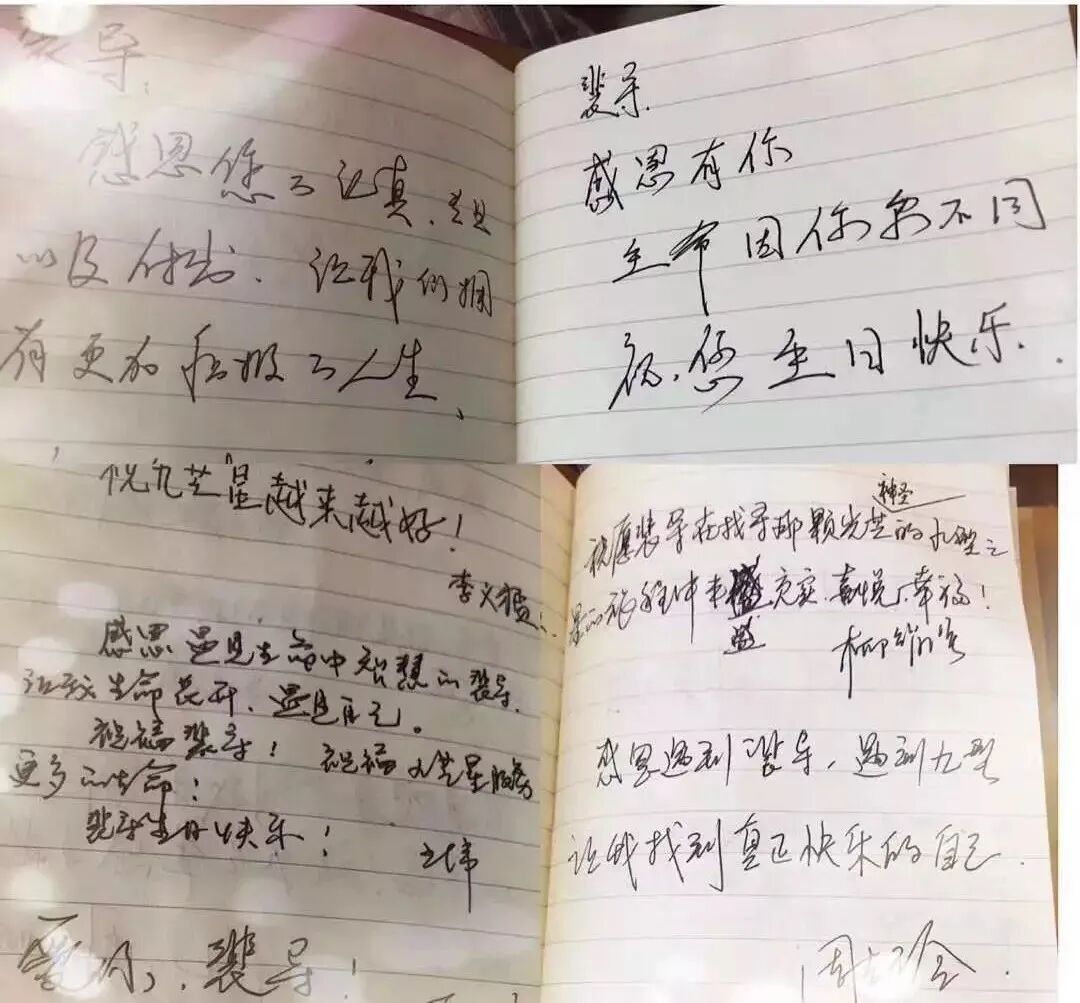 裴导.
感恩您的认真、
以及付出. 让我们拥
有更加积极的人生、
裴导.
感恩有你
生命因你而不同
祝.您生日快乐.
祝九芒星越来越好!
李义
感恩遇见生命中智慧的裴导.
让我生命盛开. 遇见自己。
祝福裴导! 祝福九芒星服务
更多的生命!
裴导生日快乐!
爱你, 裴导!
神圣
祝愿裴导在找寻那颗光芒的九型之
星的旅程中 充实、喜悦、幸福!
柳
感恩遇到裴导, 遇到九型
让我找到真正快乐的自己.
周